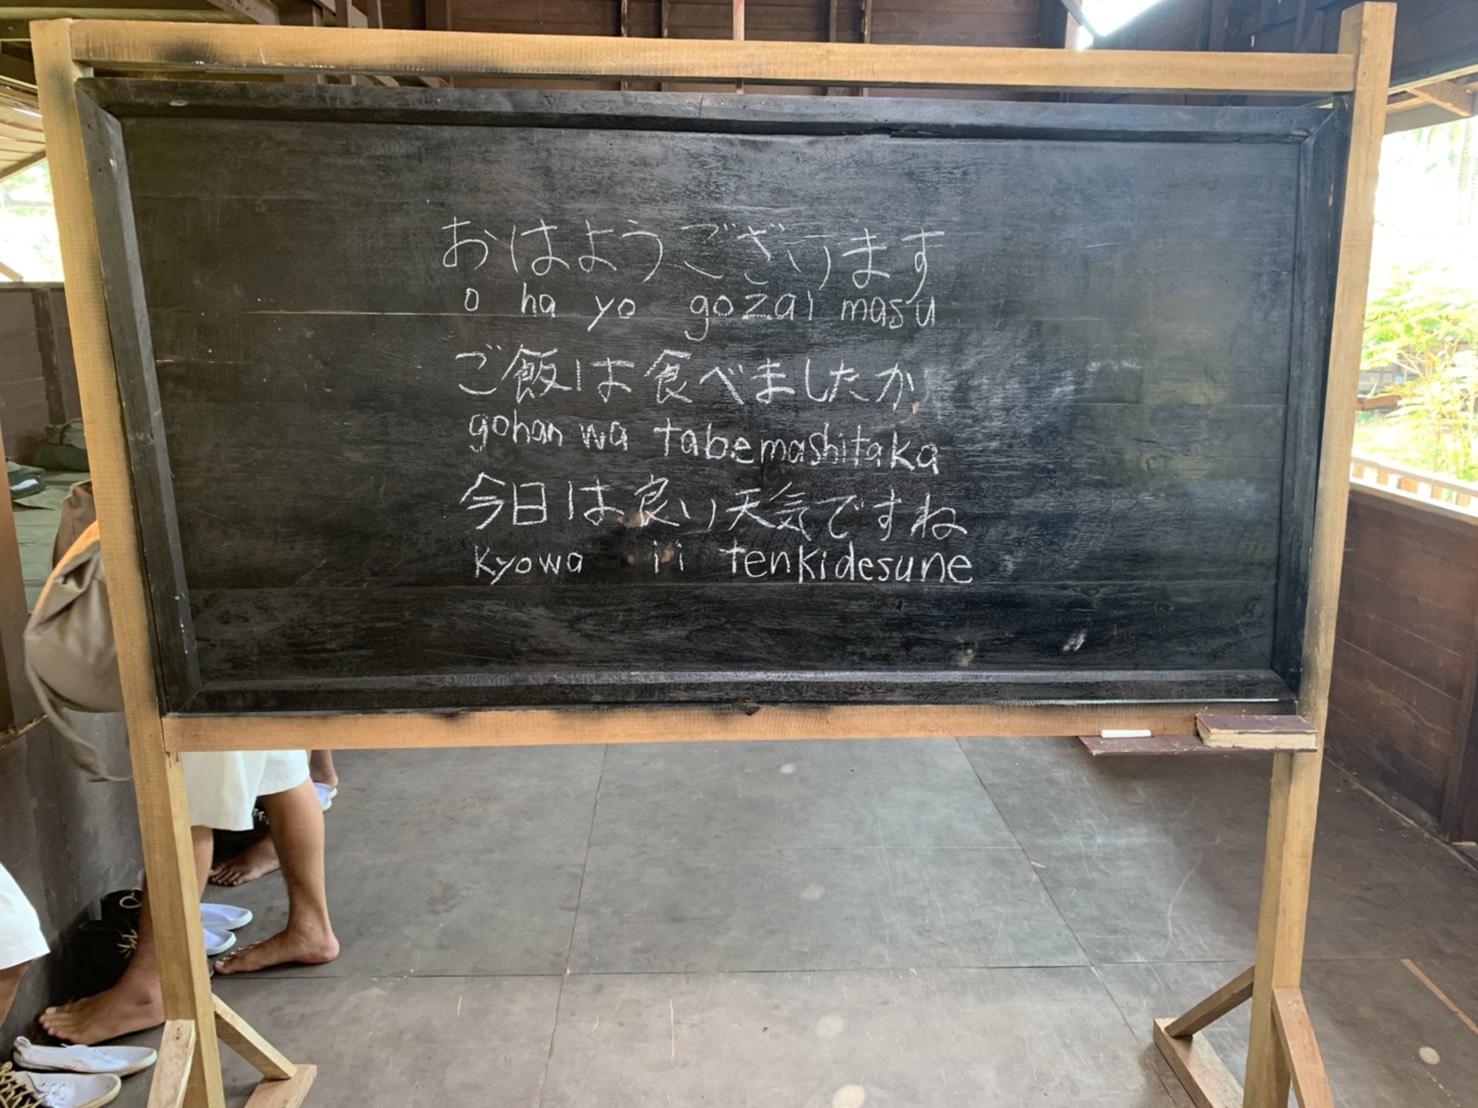 おはようございます
o ha yo gozai masu
ご飯は食べましたか
gohan wa tabemashitaka
今日は良い天気ですね
kyowa ii tenkidesune